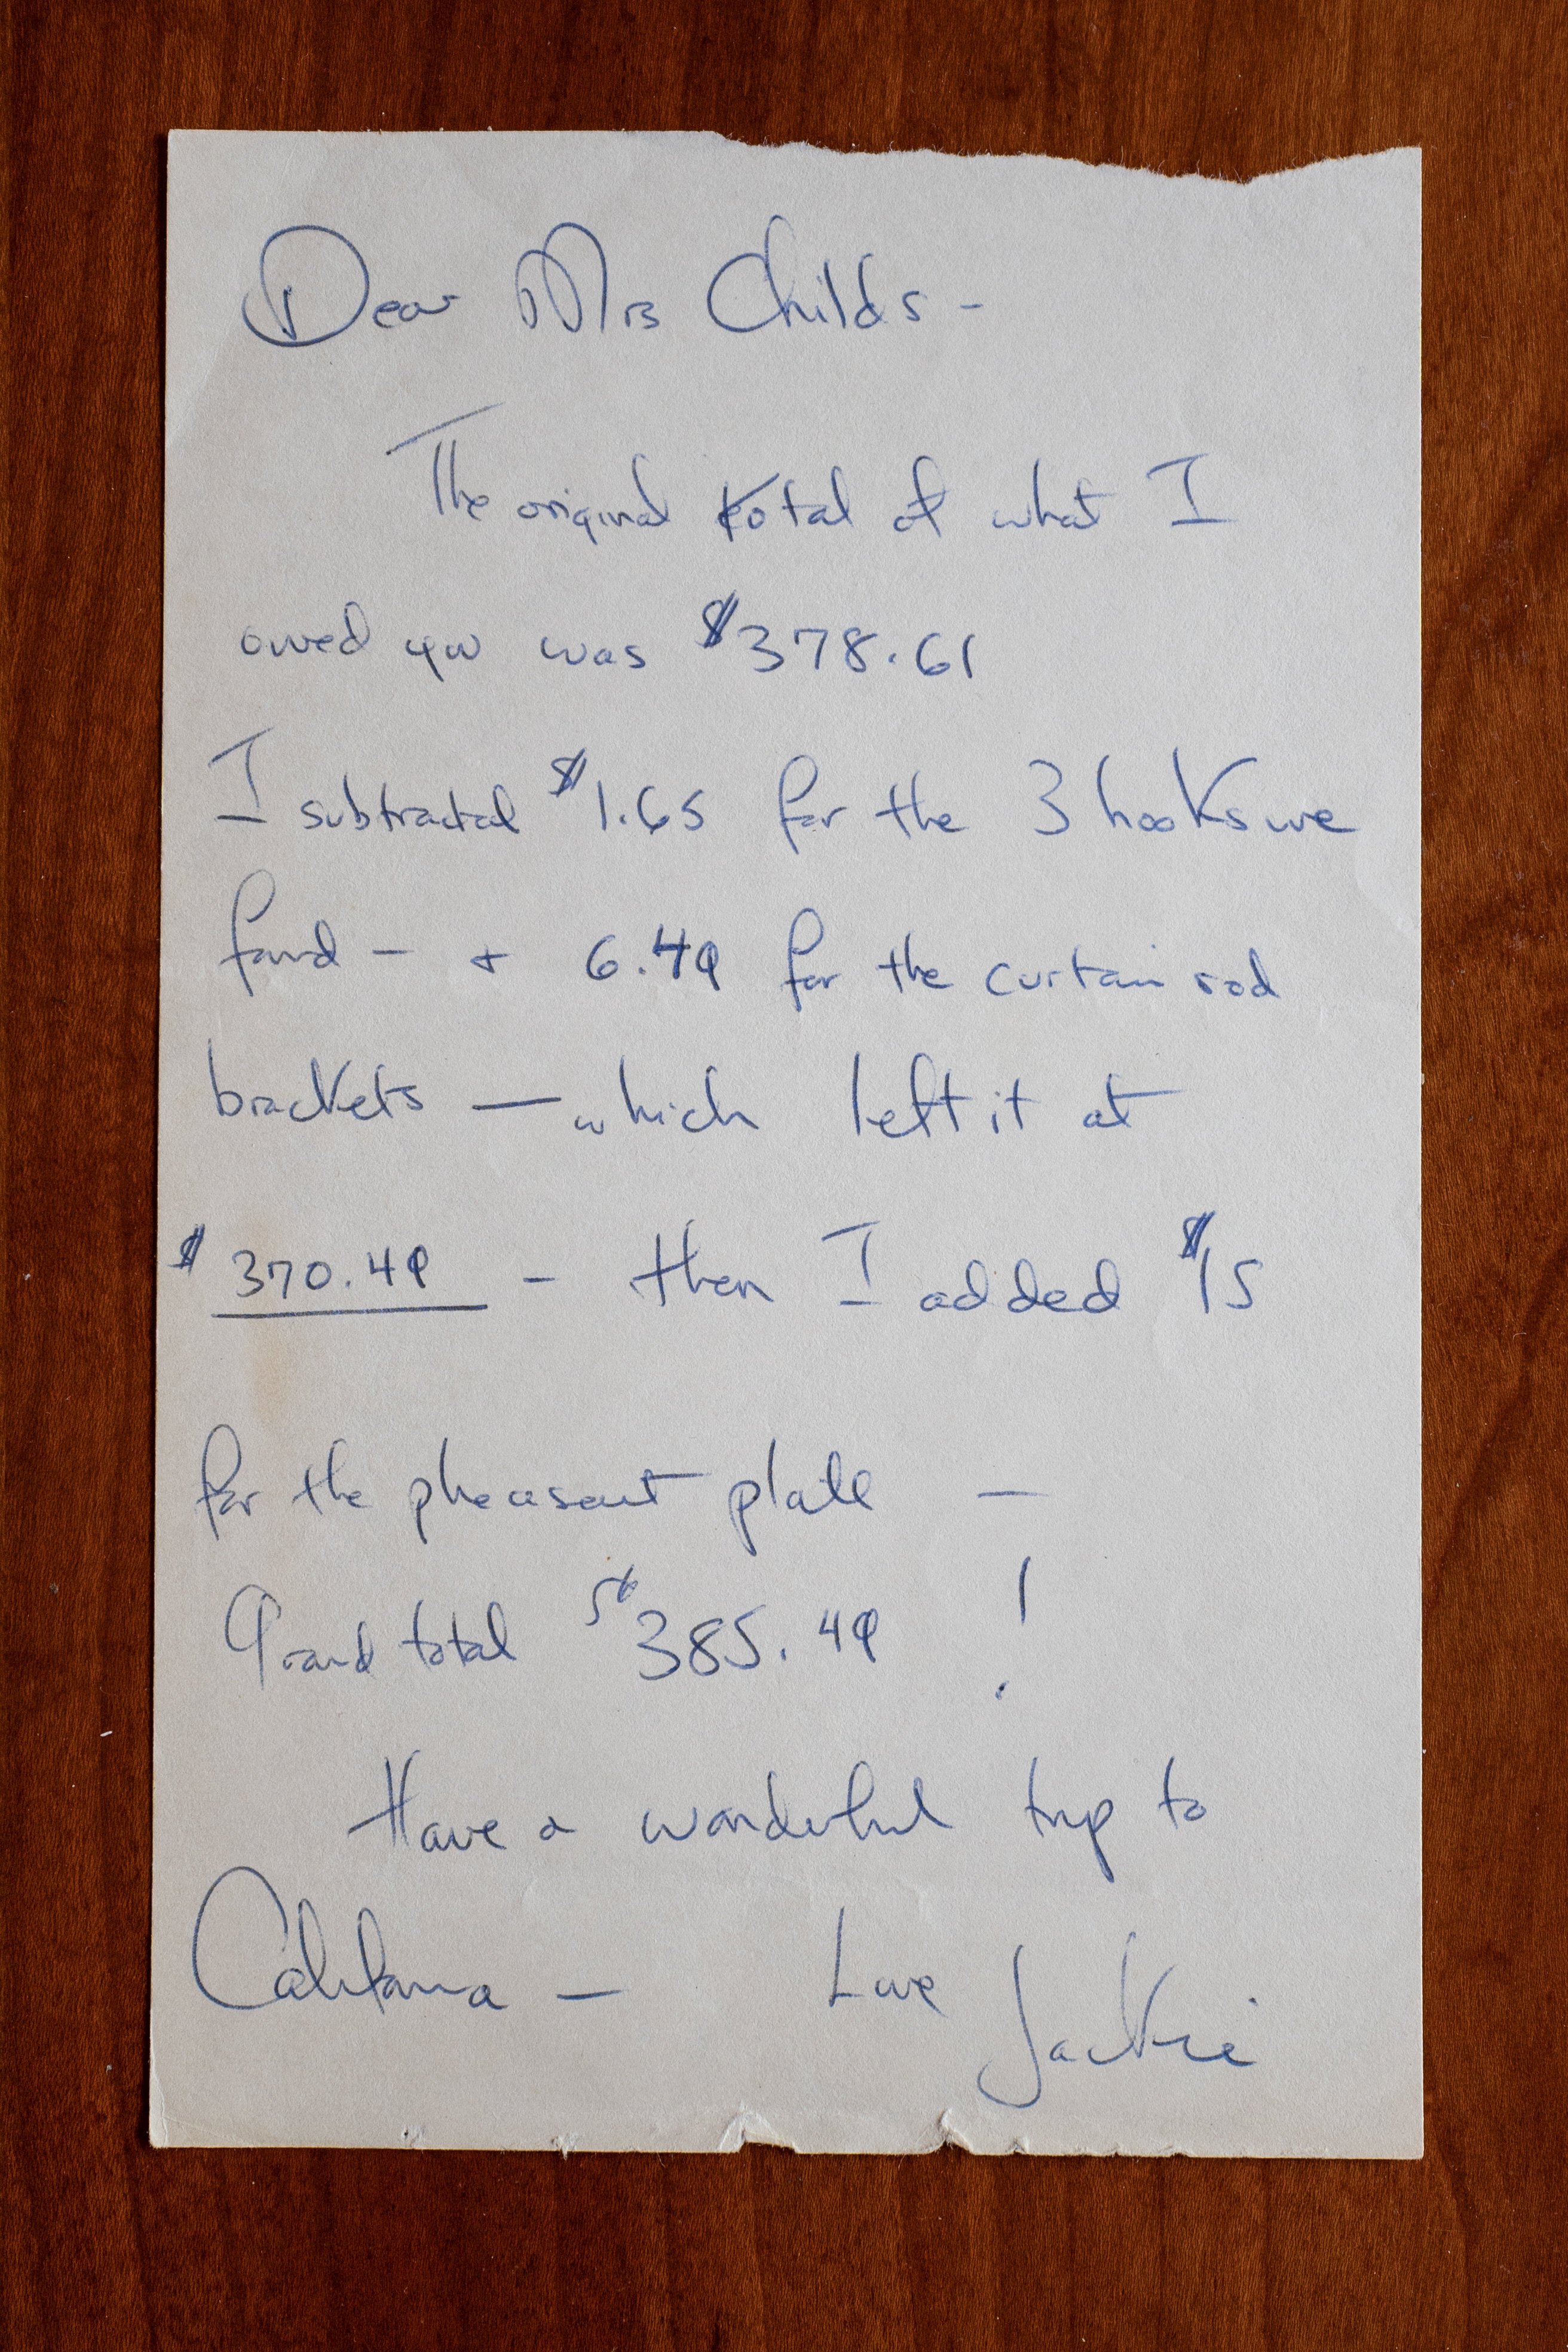 Dear Mrs Childs -
The original total of what I
owed you was $378.61
I subtracted $1.65 for the 3 hooks we
found - + 6.49 for the curtain rod
brackets — which left it at
$370.49 - then I added $15
for the pheasant plate —
Grand total $385.49 !
Have a wonderful trip to
California — Love
Jackie